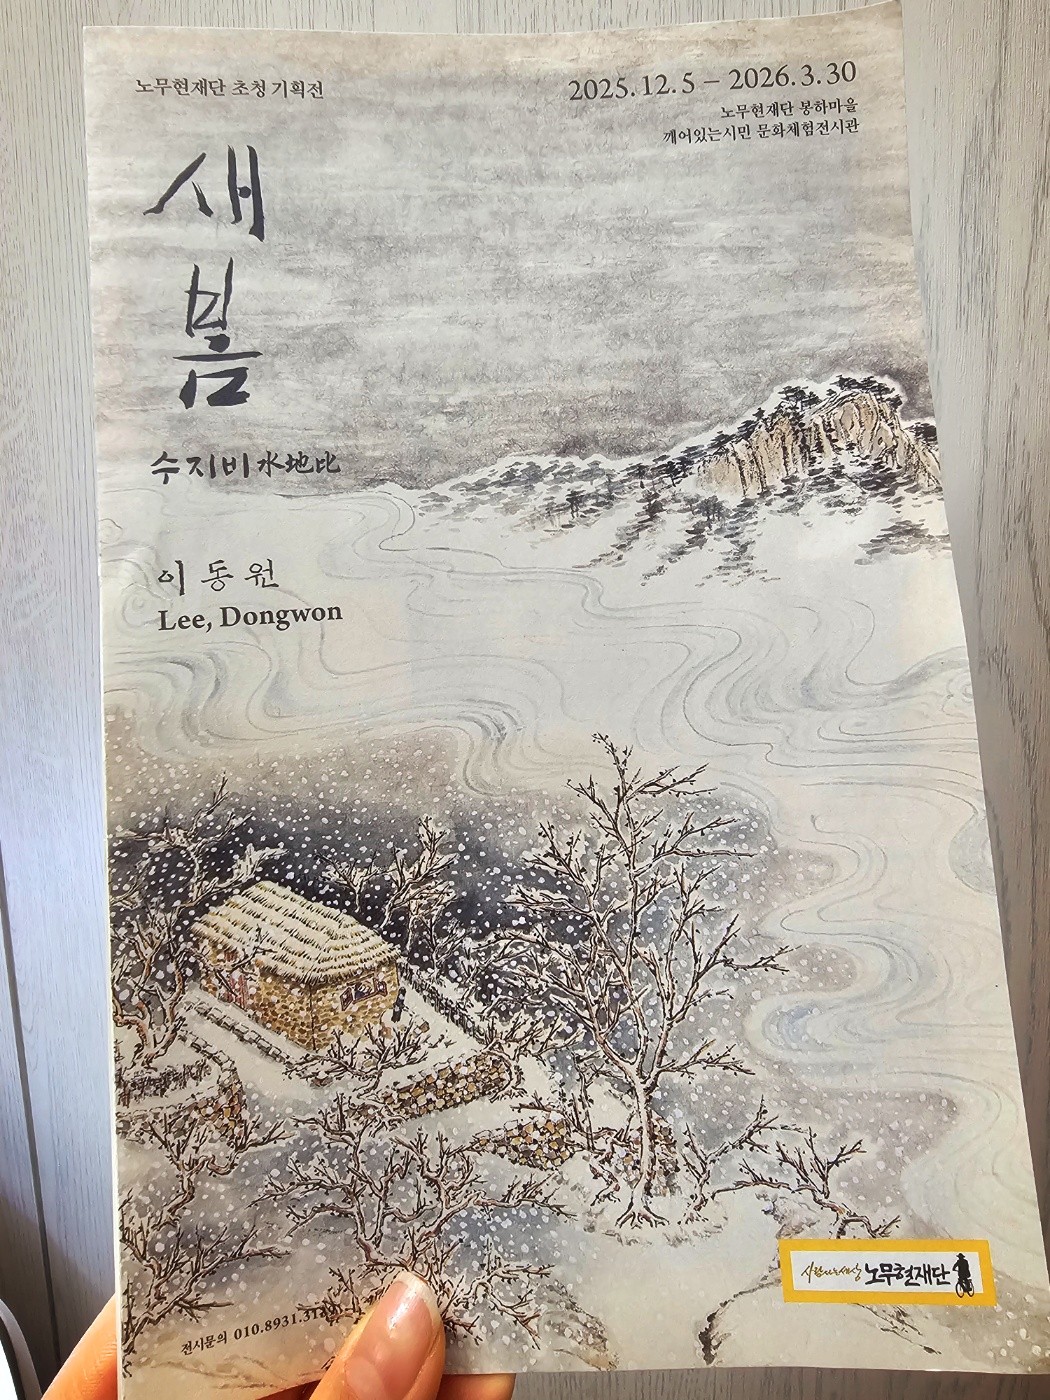 노무현재단 초청 기획전
2025.12.5 – 2026.3.30
노무현재단 봉하마을
깨어있는시민 문화체험전시관
새
봄
수지비水地比
이동원
Lee, Dongwon
사람사는세상 노무현재단
전시문의 010.8931.31